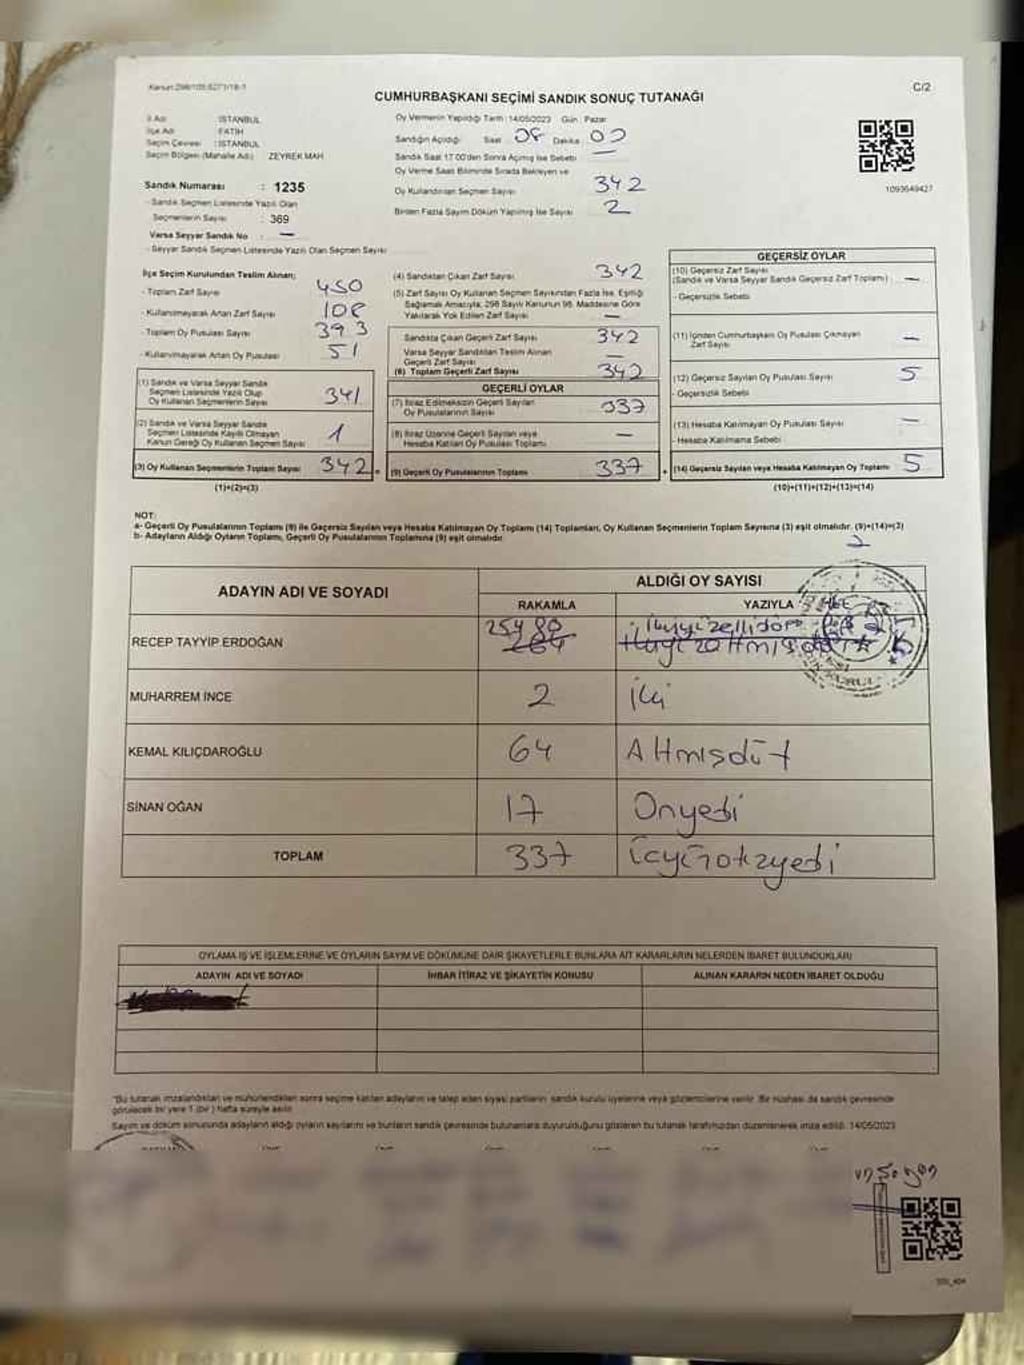 Kanun:298/105;6271/18-1
C/2
CUMHURBAŞKANI SEÇİMİ SANDIK SONUÇ TUTANAĞI
İl Adı : İSTANBUL
İlçe Adı : FATİH
Seçim Çevresi : İSTANBUL
Seçim Bölgesi (Mahalle Adı) ZEYREK MAH
Sandık Numarası : 1235
- Sandık Seçmen Listesinde Yazılı Olan
Seçmenlerin Sayısı : 369
Varsa Seyyar Sandık No : —
- Seyyar Sandık Seçmen Listesinde Yazılı Olan Seçmen Sayısı
Oy Vermenin Yapıldığı Tarih :14/05/2023 Gün : Pazar
Sandığın Açıldığı Saat 08 Dakika : 00
Sandık Saat 17.00'den Sonra Açılmış İse Sebebi —
Oy Verme Saati Bitiminde Sırada Bekleyen ve
Oy Kullandırılan Seçmen Sayısı 342
Birden Fazla Sayım Döküm Yapılmış İse Sayısı 2
1093649427
İlçe Seçim Kurulundan Teslim Alınan;
- Toplam Zarf Sayısı 450
- Kullanılmayarak Artan Zarf Sayısı 108
- Toplam Oy Pusulası Sayısı 393
- Kullanılmayarak Artan Oy Pusulası 51
(1) Sandık ve Varsa Seyyar Sandık
Seçmen Listesinde Yazılı Olup
Oy Kullanan Seçmenlerin Sayısı 341
(2) Sandık ve Varsa Seyyar Sandık
Seçmen Listesinde Kayıtlı Olmayan
Kanun Gereği Oy Kullanan Seçmen Sayısı 1
(3) Oy Kullanan Seçmenlerin Toplam Sayısı 342
(1)+(2)=(3)
(4) Sandıktan Çıkan Zarf Sayısı 342
(5) Zarf Sayısı Oy Kullanan Seçmen Sayısından Fazla İse, Eşitliği
Sağlamak Amacıyla, 298 Sayılı Kanunun 98. Maddesine Göre
Yakılarak Yok Edilen Zarf Sayısı —
Sandıkta Çıkan Geçerli Zarf Sayısı 342
Varsa Seyyar Sandıktan Teslim Alınan
Geçerli Zarf Sayısı —
(6) Toplam Geçerli Zarf Sayısı 342
GEÇERLİ OYLAR
(7) İtiraz Edilmeksizin Geçerli Sayılan
Oy Pusulalarının Sayısı 337
(8) İtiraz Üzerine Geçerli Sayılan veya
Hesaba Katılan Oy Pusulası Toplamı —
(9) Geçerli Oy Pusulalarının Toplamı 337
GEÇERSİZ OYLAR
(10) Geçersiz Zarf Sayısı
(Sandık ve Varsa Seyyar Sandık Geçersiz Zarf Toplamı) —
- Geçersizlik Sebebi
(11) İçinden Cumhurbaşkanı Oy Pusulası Çıkmayan
Zarf Sayısı —
(12) Geçersiz Sayılan Oy Pusulası Sayısı 5
- Geçersizlik Sebebi
(13) Hesaba Katılmayan Oy Pusulası Sayısı —
- Hesaba Katılmama Sebebi
(14) Geçersiz Sayılan veya Hesaba Katılmayan Oy Toplamı 5
(10)+(11)+(12)+(13)=(14)
NOT:
a- Geçerli Oy Pusulalarının Toplamı (9) ile Geçersiz Sayılan veya Hesaba Katılmayan Oy Toplamı (14) Toplamları, Oy Kullanan Seçmenlerin Toplam Sayısına (3) eşit olmalıdır. (9)+(14)=(3)
b- Adayların Aldığı Oyların Toplamı, Geçerli Oy Pusulalarının Toplamına (9) eşit olmalıdır.
2
ADAYIN ADI VE SOYADI
ALDIĞI OY SAYISI
RAKAMLA YAZIYLA
RECEP TAYYİP ERDOĞAN 254
MUHARREM İNCE 2 İki
KEMAL KILIÇDAROĞLU 64 Altmışdört
SİNAN OĞAN 17 Onyedi
TOPLAM 337 Üçyüzotuzyedi
OYLAMA İŞ VE İŞLEMLERİNE VE OYLARIN SAYIM VE DÖKÜMÜNE DAİR ŞİKAYETLERLE BUNLARA AİT KARARLARIN NELERDEN İBARET BULUNDUKLARI
ADAYIN ADI VE SOYADI İHBAR İTİRAZ VE ŞİKAYETİN KONUSU ALINAN KARARIN NEDEN İBARET OLDUĞU
"Bu tutanak imzalandıktan ve mühürlendikten sonra seçime katılan adayların ve talep eden siyasi partilerin sandık kurulu üyelerine veya gözlemcilerine verilir. Bir nüshası da sandık çevresinde
görülecek bir yere 1 (bir) hafta süreyle asılır.
Sayım ve döküm sonucunda adayların aldığı oyların sayılarını ve bunların sandık çevresinde bulunanlara duyurulduğunu gösteren bu tutanak tarafımızdan düzenlenerek imza edildi. 14/05/2023